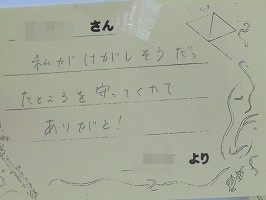 さん
私がけがしそうだっ
たところを守ってくれて
ありがと！
より